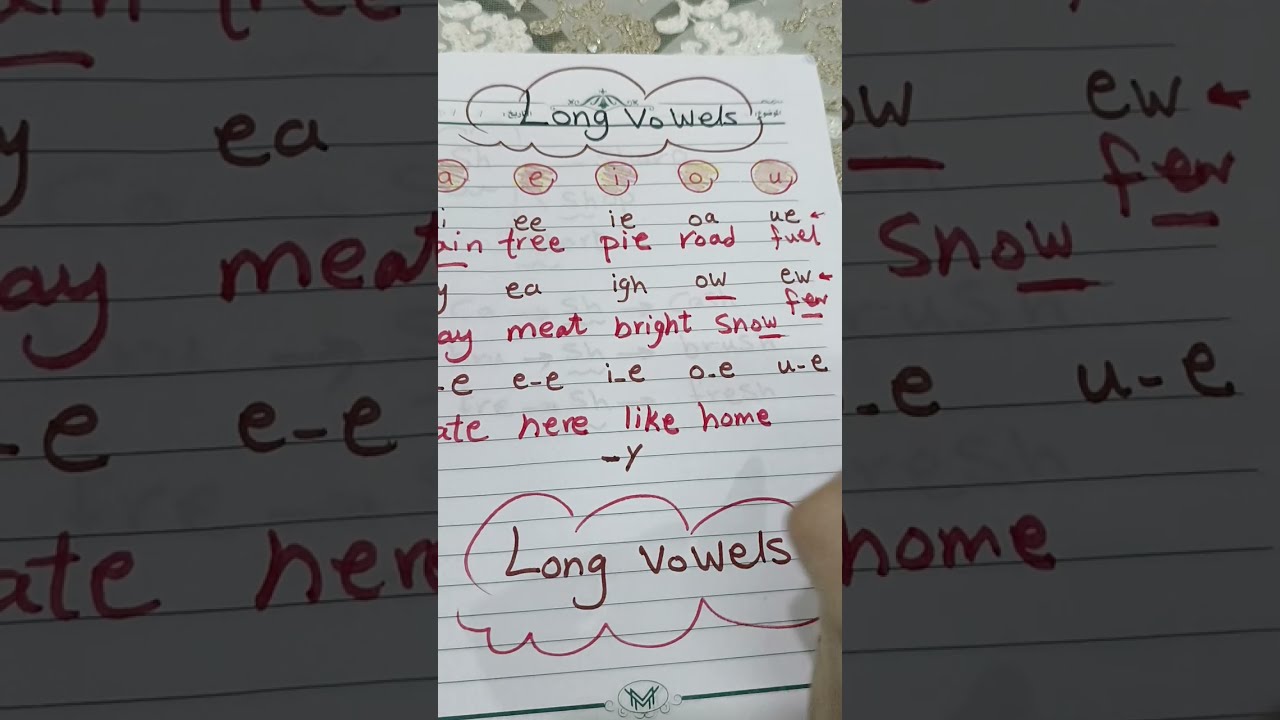 Long Vowels
a e i o u
i ee ie oa ue
ain tree pie road fuel
y ea igh ow ew
few
ay meat bright snow
-e e-e i-e o-e u-e
ate here like home
-y
Long Vowels
M